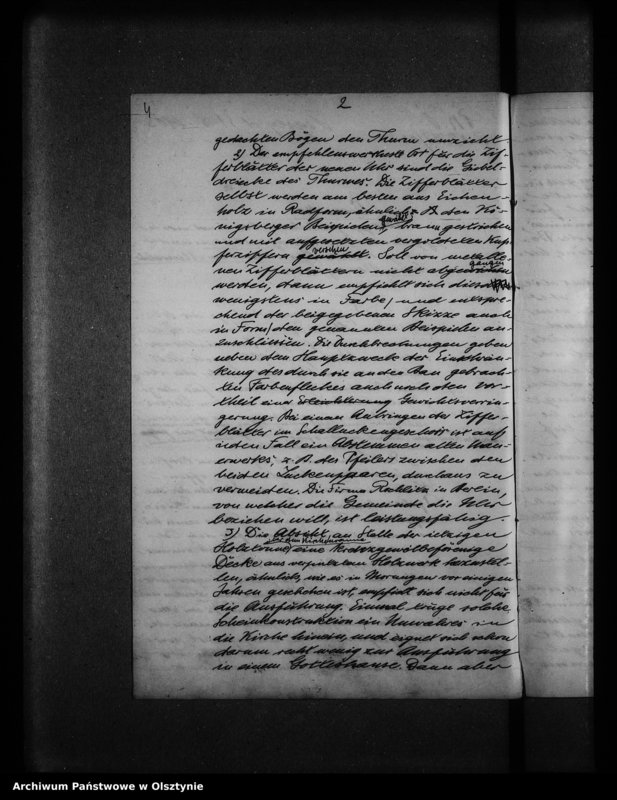 4
2
gedachten Bögen den Thurm umzieht.
2) Der empfehlenswertheste Ort für die Zif-
ferblätter der neuen Uhr sind die Giebel-
dreiecke des Thurmes. Die Zifferblätter
selbst werden am besten aus Eichen-
holz in Radform, ähnlich den Kö-
nigsberger Beispielen, braun gestrichen
und mit aufgesetzten vergoldeten Kup-
ferziffern gewählt. Soll von metalle-
versehen
nen Zifferblättern nicht abge
gangen
werden, dann empfiehlt sich
wenigstens in Farbe, und entspre-
chend der beigegebenen Skizze auch
in Form, den genannten Beispielen an-
zuschliessen. Die Durchbrechungen geben
neben dem Hauptzwecke der Einschrän-
kung des durch sie an den Bau gebrach-
ten Farbenfleckes auch noch den Vor-
theil einer Gewichtsverrin-
gerung. Bei einem Anbringen der Ziffer-
blätter im Schallluckengeschoss ist auf
jeden Fall ein Abstemmen alten Mau-
erwerks, z. B. des Pfeilers zwischen den
beiden Luckenpaaren, durchaus zu
vermeiden. Die Firma in Berlin,
von welcher die Gemeinde die Uhr
beziehen will, ist leistungsfähig.
3) Die Absicht, an Stelle der jetzigen
Holztonne eine kreuzgewölbeförmige
Decke aus verputztem Holzwerk herzustel-
len, ähnlich, wie es in Morungen vor einigen
Jahren geschehen ist, empfiehlt sich nicht für
die Ausführung. Einmal trüge solche
Scheinkonstruktion ein Unwahres in
die Kirche hinein, und eignet sich schon
darum recht wenig zur Ausführung
in einem Gotteshause. Dann aber
Archiwum Państwowe w Olsztynie